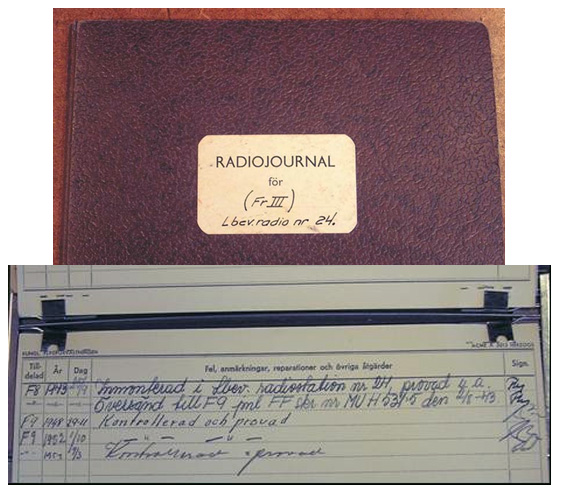 RADIOJOURNAL
för
(Fr III)
Lbev. radio nr 24.
KUNGL. FLYGFÖRVALTNINGEN
Till-delad År Dag Fel, anmärkningar, reparationer och övriga åtgärder Sign.
F8 1943 Inmonterad i Lbev. radiostation nr 24, provad u.a.
Översänd till F9 jml FF skr nr MU H 521:5 den
F9 1948 29-11 Kontrollerad och provad
F9 1952 1/10 " " "
1953 Kontrollerad o provad